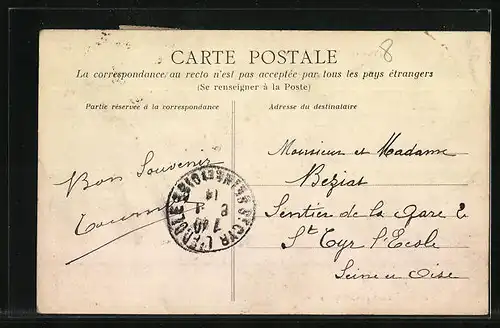 8
CARTE POSTALE
La correspondance au recto n'est pas acceptée par tous les pays étrangers
(Se renseigner à la Poste)
Partie réservée à la correspondance
Adresse du destinataire
Bon Souvenir
Monsieur et Madame
Beziat
Sentier de la Gare 2
St Cyr l'Ecole
Seine et Oise
ST CYR L'ECOLE
7 40
8
14